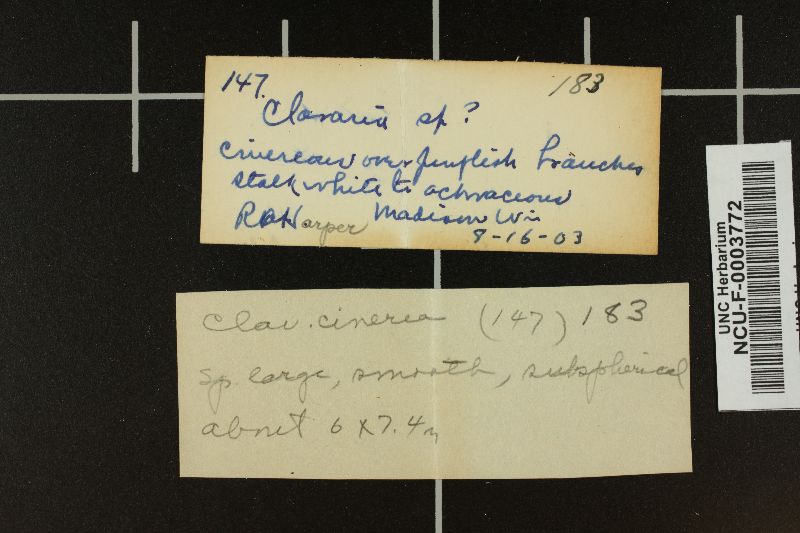 147. 183
Clavaria sp?
cinereous over purplish branches
stalk white to ochraceous
RAHarper Madison Wis
8-16-03
Clav. cinerea (147) 183
Sp. large, smooth, subspherical
about 6 x 7.4
UNC Herbarium
NCU-F-0003772